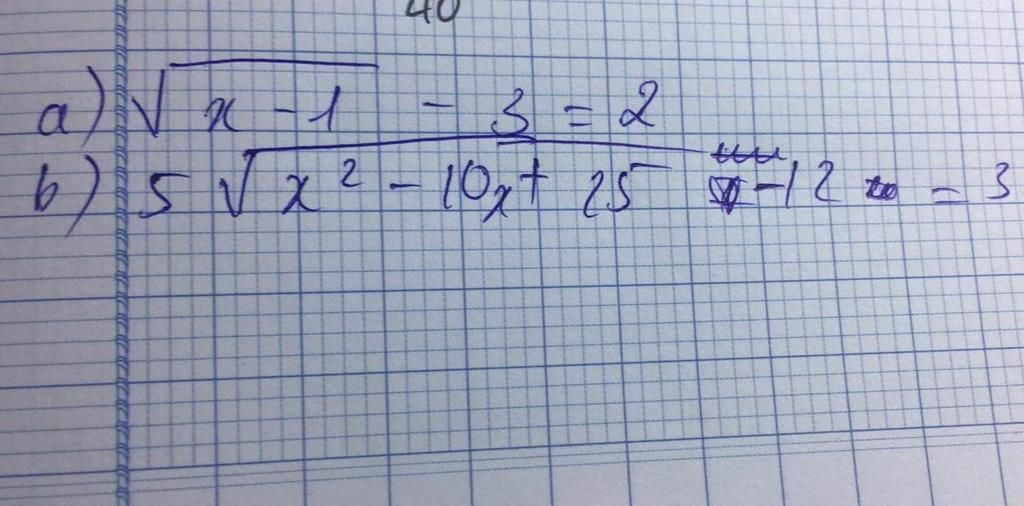 40
a) √x - 1 - 3 = 2
b) 5 √x² - 10x + 25 - 12 = 3